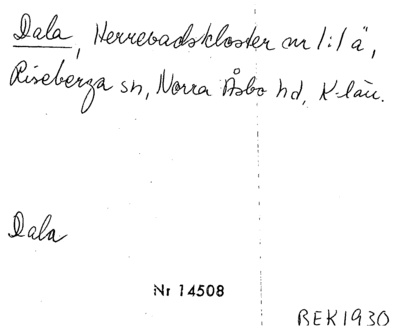 Dala, Herrevadskloster nr 1:1 ä,
Riseberga sn, Norra Åsbo hd, K-län.
Dala
Nr 14508
BEK1930